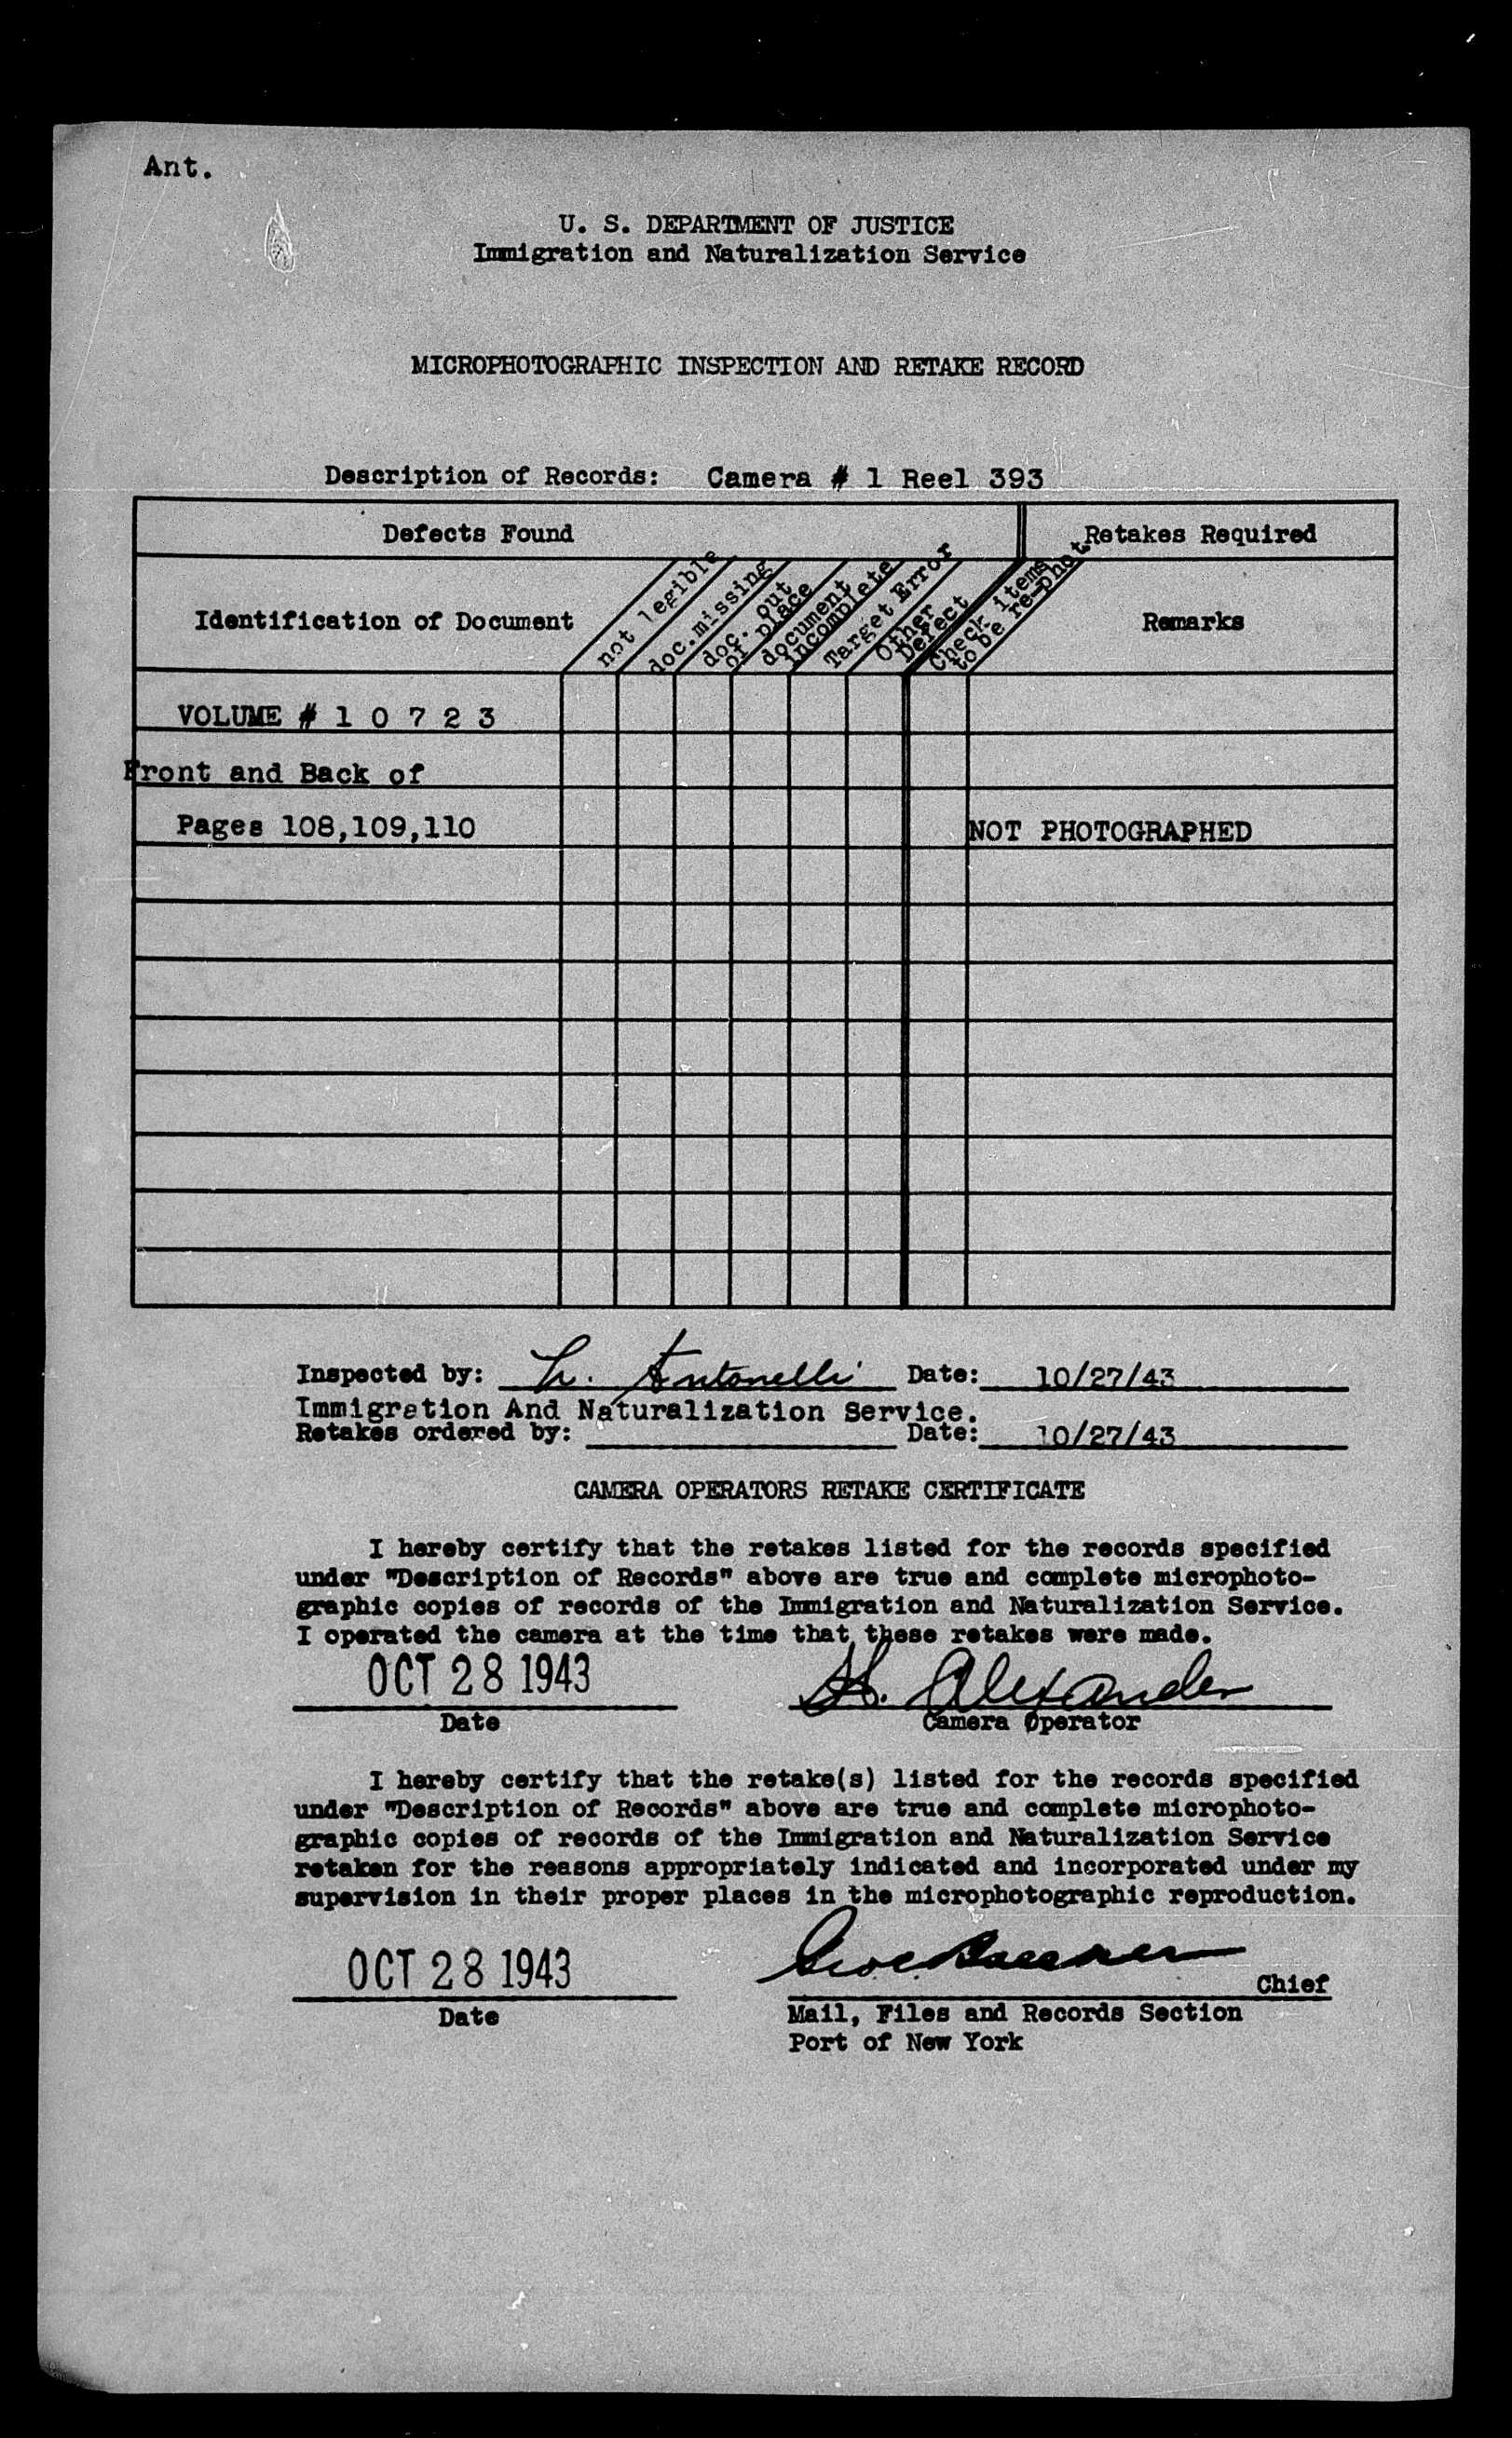 Ant.
U. S. DEPARTMENT OF JUSTICE
Immigration and Naturalization Service
MICROPHOTOGRAPHIC INSPECTION AND RETAKE RECORD
Description of Records: Camera # 1 Reel 393
Defects Found
Retakes Required
Identification of Document
not legible
doc.missing
doc. out
of place
document
incomplete
Target Error
Other
Defect
Check items
to be re-phot.
Remarks
VOLUME # 1 0 7 2 3
Front and Back of
Pages 108,109,110 NOT PHOTOGRAPHED
Inspected by: L. Antonelli Date: 10/27/43
Immigration And Naturalization Service.
Retakes ordered by: Date: 10/27/43
CAMERA OPERATORS RETAKE CERTIFICATE
I hereby certify that the retakes listed for the records specified
under "Description of Records" above are true and complete microphoto-
graphic copies of records of the Immigration and Naturalization Service.
I operated the camera at the time that these retakes were made.
OCT 28 1943 Alexander
Date Camera Operator
I hereby certify that the retake(s) listed for the records specified
under "Description of Records" above are true and complete microphoto-
graphic copies of records of the Immigration and Naturalization Service
retaken for the reasons appropriately indicated and incorporated under my
supervision in their proper places in the microphotographic reproduction.
OCT 28 1943 Chief
Date Mail, Files and Records Section
Port of New York